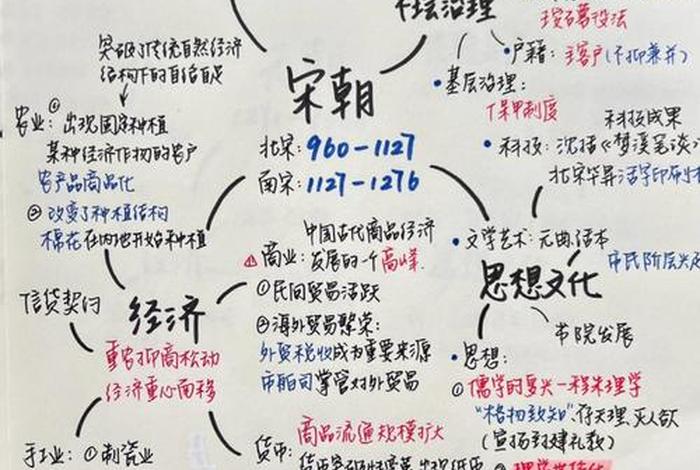 社会治理
按石募役法
户籍：主客户(不抑兼并)
基层治理：
保甲制度
突破了传统自然经济
结构下的自给自足
宋朝
北宋：960—1127
南宋：1127—1276
农业：①出现固定种植
某种经济作物的农户
农产品商品化
②改变了种植结构
棉花在内地开始种植
科技成果
科技：沈括《梦溪笔谈
北宋毕昇活字印刷
中国古代商品经济
商业：发展的一个高峰
①民间贸易活跃
②海外贸易繁荣：
外贸税收成为重要来源
市舶司掌管对外贸易
文学艺术：元曲、话本
市民阶层兴起
思想文化
书院发展
信贷契约
经济
重农抑商松动
经济重心南移
思想：
①儒学的复兴—程朱理学
"格物致知"，存天理，灭人欲
(宣扬封建礼教)
手工业：①制瓷业
商品流通规模扩大
货币：